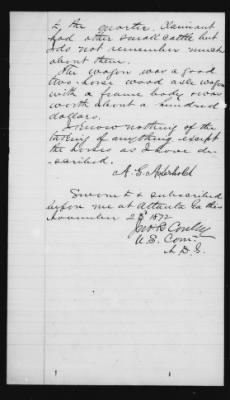 by the quarter. Claimant
had other small cattle but
I do not remember much
about them.
The wagon was a good
two-horse wood axle wagon
with a frame body & was
worth about a hundred
dollars.
I know nothing of the
taking of anything except
the horses as I have de-
scribed.
A. G.
Sworn to & subscribed
before me at Atlanta Ga this
November 2d 1872
Conley
U.S. Com.
N.D.G.